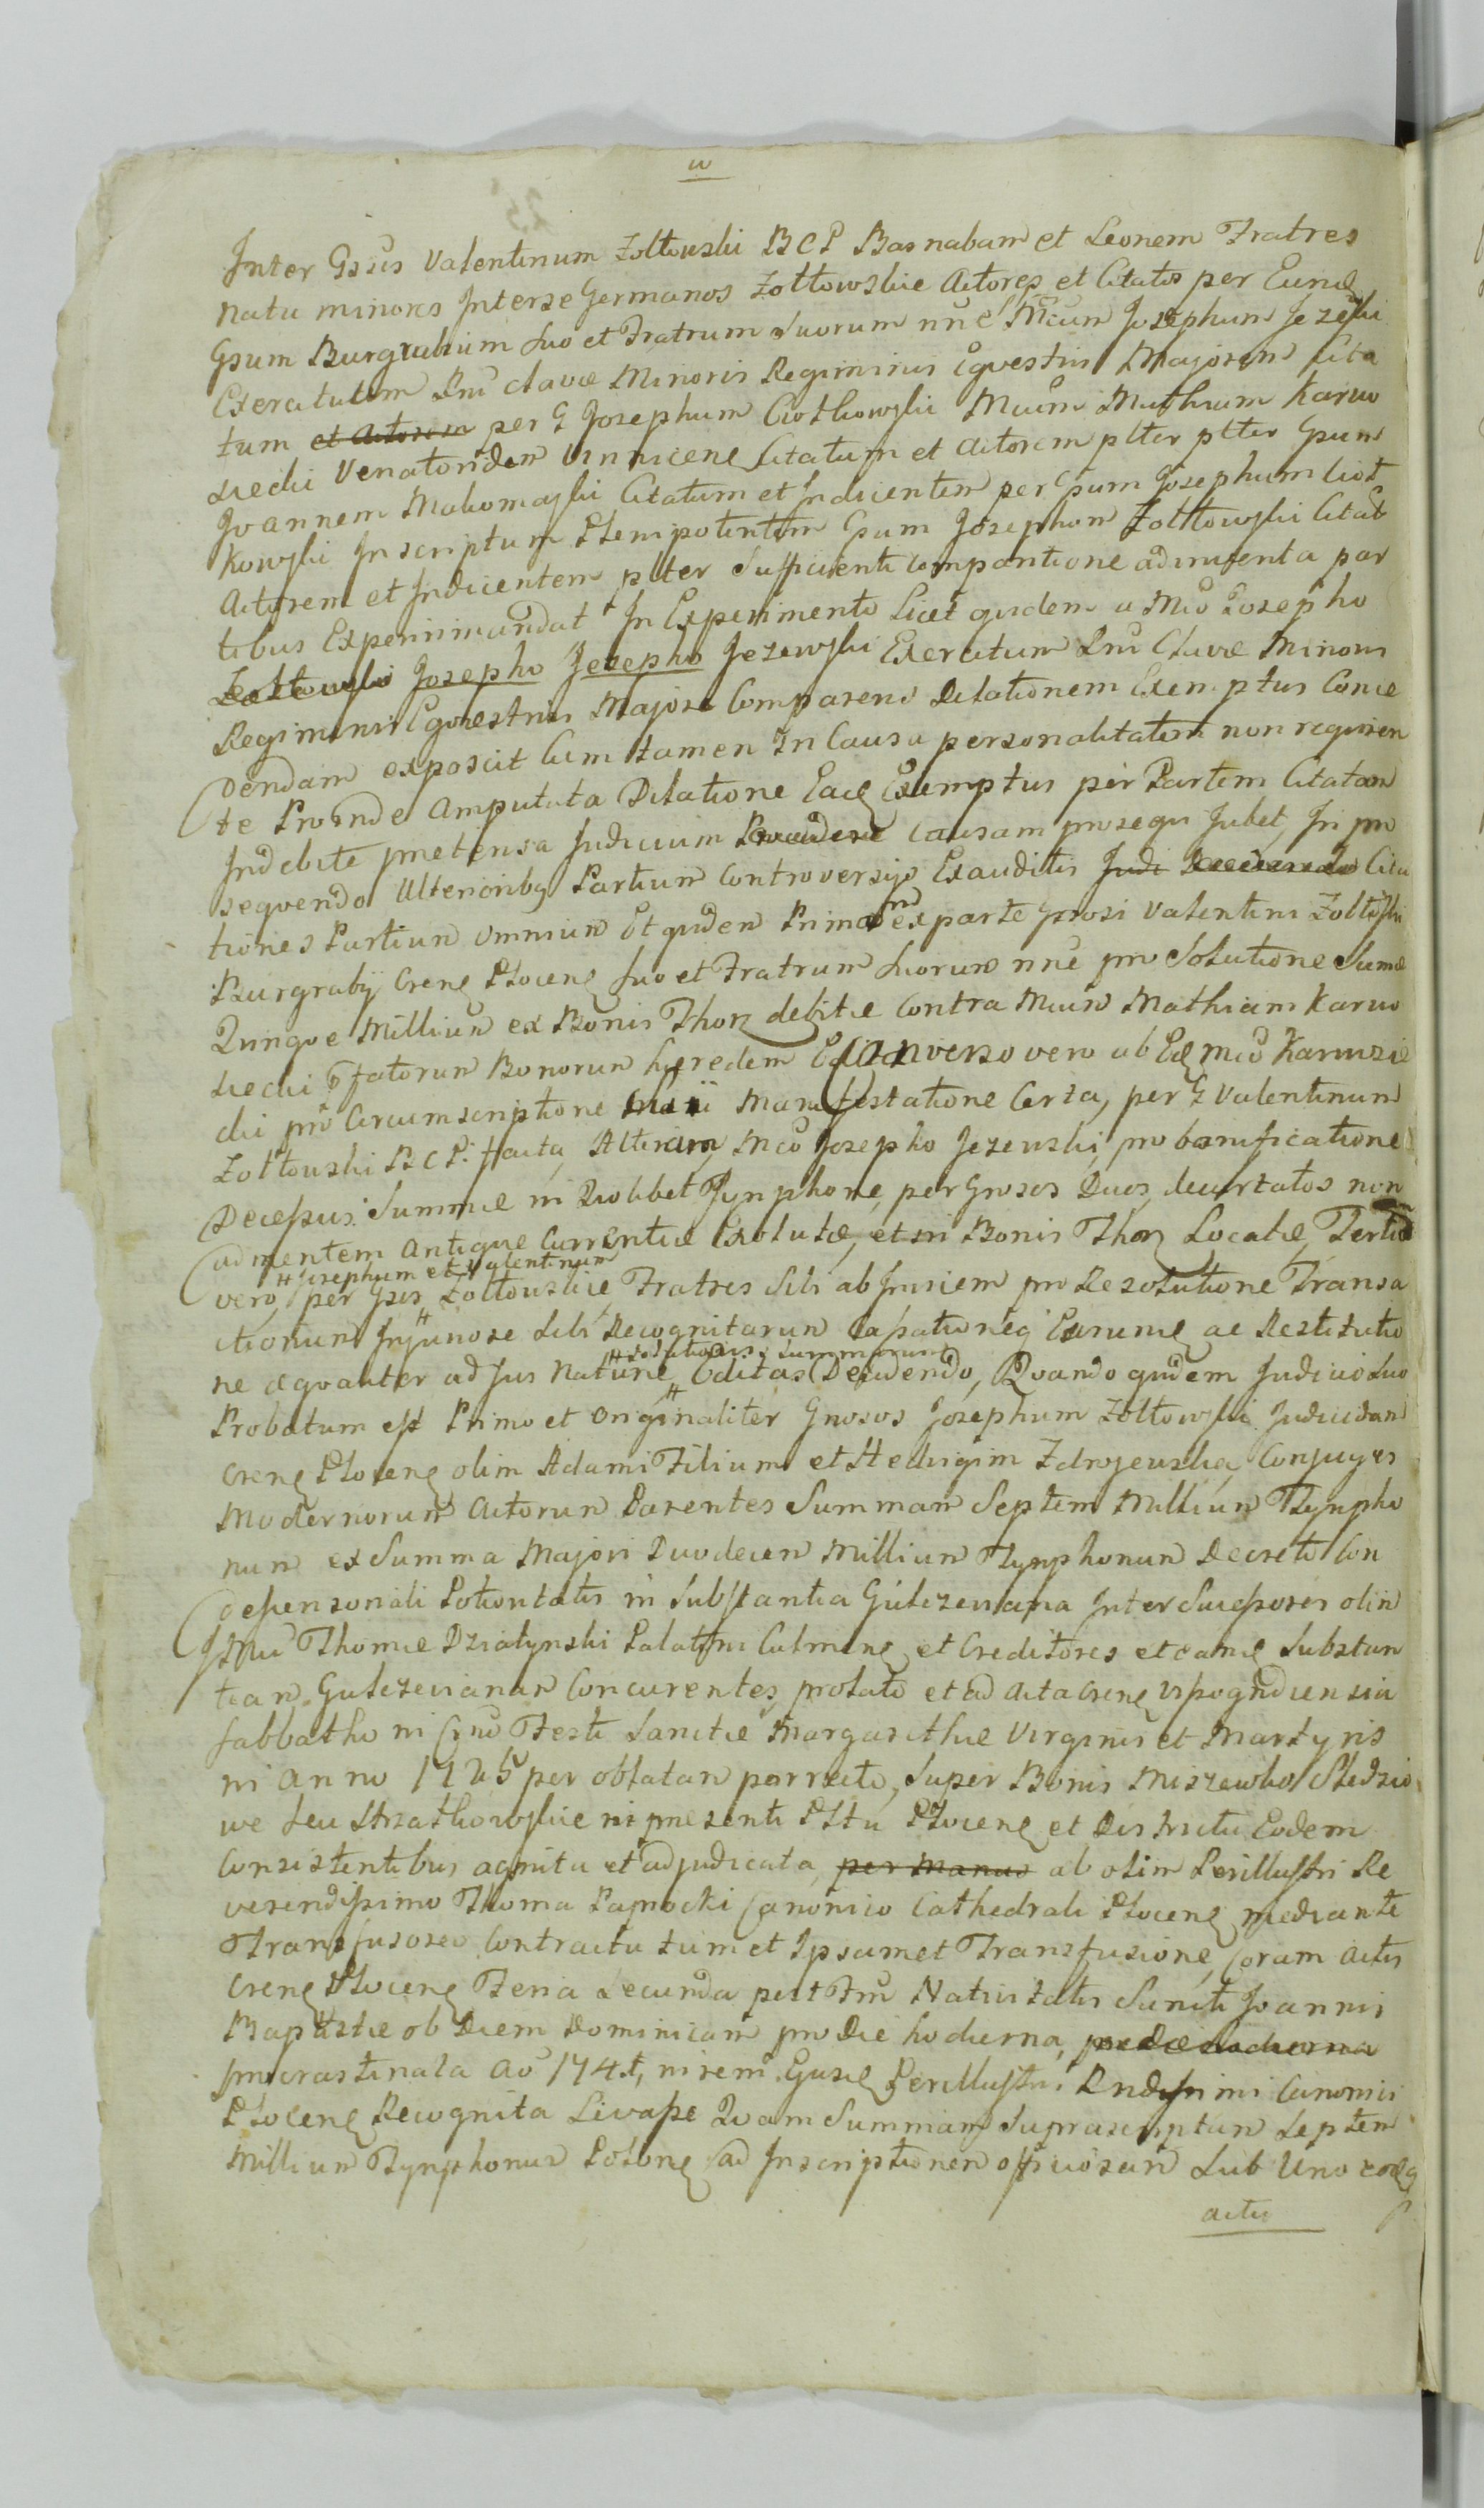 w
Inter Gsos Valentinum Zołtowski B C P Barnabam et Leonem Fratres
natu minores Interse Germanos Zołtowskie Actores et Citatos per Eund
Gsum Burgrabium suo et Fratrum suorum nne Mcum Josephum Jezewski
Exercituum Rni clavæ Minoris Regiminis Eqvestris Majorem Cita
tum et Actorem per G Josephum Ciotkowski Mcum Mathiam Karwo
siecki Venatoridem Winnicens Citatum et Actorem plter plter Gsum
Joannem Makomaski Citatum et Indicentem per Gsum Josephum Ciot
kowski Inscriptum Plenipotentem Gsum Josephum Zołtowski Citat
Actorem et Indicentem plter Sufficienti Comparitione adinventa par
tibus Experiri mandat In Experimento Licet quidem a Mco Josepho
Zołtowski Josepho Josepho Jezewski Exercituum Rni Clavæ Minoris
Regiminis Eqvestris Majore Comparens Dilationem Exemptus Conce
dendam exposcit Cum tamen In Causa personalitatem non requiren
te Proinde Amputata Dilatione Ead Exemptus per Partem Citatam
Indebite prætensa Judicium Procedere causam prosequi Jubet, In pro
seqvendo Ulterioribus Partium Controversijs Exauditis Judi Decidendo Cita
tiones Partium Omnium Et quidem Primam ex parte Gnosi Valentini Zołtowski
Burgrabij Crens Plocens suo et Fratrum suorum nne pro Solutione Summæ
Quinqve Millium ex Bonis Thorz debitæ Contra Mcum Mathiam Karwo
siecki pfatorum Bonorum hæredem E Converso vero ab Eod Mco Karwosie
cki pro Circumscriptione Manifestatione Certa, per G Valentinum
Zołtowski B C P. facta, Alteram, Mco Josepho Jezewski, pro bonificatione
Decessus Summæ in Quolibet Tynphone, per Grosos Duos decurtatos non
ad mentem Antiquæ Currentiæ Exolutæ, et in Bonis Thorz Locatæ, Tertio
# Josephum et Valentinum
vero, per Gsos # Zołtowskie Fratres Sibi ab Invicem pro Resolutione Transa
ctionum Injunose Sibi Recognitarum Cassationeq Earund ac Restitutio
# Solutionis Summarum
ne æqvaliter ad Jus Naturæ # Editas Decidendo, Qvando quidem Judicio suo
Probatum est Primo et Originaliter Gnosos Josephum Zołtowski Judicidam
Crens Plocens olim Adami Filium et Hedvigim Zdrojewska Conjuges
Modernorum Actorum Parentes Summam Septem Millium Tynpho
num ex Summa Majori Duodecem Millium Tynphonum Decreto Con
descensoriali Potioritatis in Substantia Gulczewiana Inter Successores olim
Thomæ Działynski Palatini Culmens et Creditores et eand Substan
tiam Gulczewianam Concurentes, prolato et ad Acta Crens
Sabbatho in Festi Sanctæ Margarithæ Virginis et Martyris
in Anno 1725 per oblatam porrecto, Super Bonis Miszewko Stedzio
we seu Strzałkowskie in præsenti Pltu Plocens et Districtu Eodem
Consistentibus agnita et adjudicata, per Manus ab olim Perillustri Re
verendissimo Thoma Paprocki Canonico Cathedrali Plocens mediante
Transfusoreo Contractu tum et Ipsamet Transfusione, Coram Actis
Crens Plocens Feria Secunda post Ftm Nativitatis Sancti Joannis
Baptistæ ob Diem Dominicam pro Die hodierna, pro die hodierna
procrastinata Ao 174, in rem Eusd Perillustris Rndissimi Canonici
Plocens Recognita Levasse Qvam Summam Suprascriptam Septem
Millium Tynphonum ad Inscriptionem officiosam Sub Uno eodq
actu